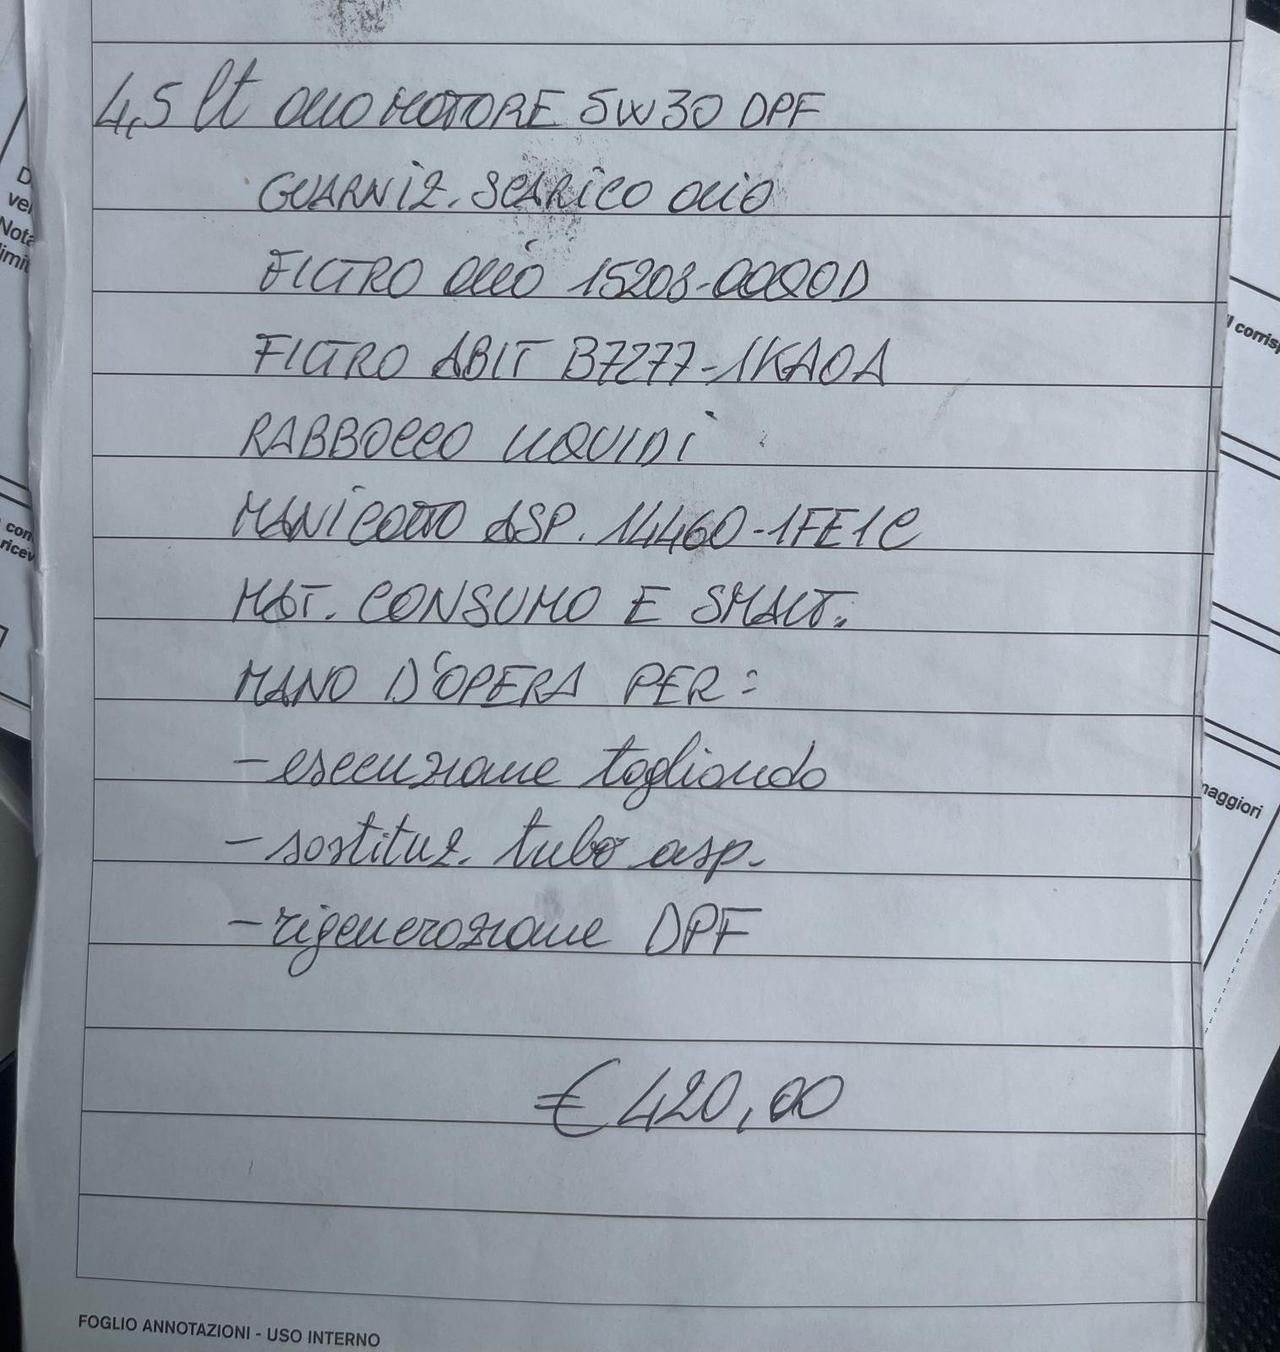 4,5 lt OLIO MOTORE 5W30 DPF
GUARNIZ. SCARICO OLIO
FILTRO OLIO 15208-00Q0D
FILTRO ABIT B7277-1KA0A
RABBOCCO LIQUIDI
MANICOTTO ASP. 14460-1FE1C
MAT. CONSUMO E SMALT.
MANO D'OPERA PER:
- esecuzione tagliando
- sostituz. tubo asp.
- rigenerazione DPF
€ 420,00
FOGLIO ANNOTAZIONI - USO INTERNO
D
vei
Nota
limit
con
ricev
il corris
maggiori